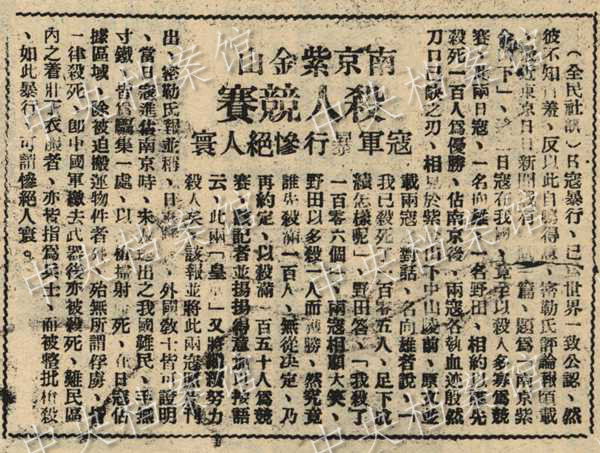 南京紫金山
殺人競賽
寇軍暴行慘絕人寰
（全民社訊）日寇暴行、已爲世界一致公認、然
彼不知自羞、反以此自鳴得意、密勒氏評論報頃載
、最近東京日日新聞載有一篇、題爲「南京紫
金山下」、述日寇在我國、竟至以殺人多寡爲競
賽、此兩日寇、一名向雄、一名野田、相約以誰先
殺死一百人爲優勝、佔南京後、兩寇各執血迹殷然
刀口已缺之刃、相見於紫金山下中山陵前、原文並
載兩寇之對話、名向雄者說、「
我已殺死了一百零五人、足下成
績怎樣呢」、野田答、「我殺了
一百零六個」、兩寇相顧大笑、
野田以多殺一人而獲勝、然究竟
誰先殺滿一百人、無從決定、乃
再約定、以殺滿一百五十人爲競
賽、該記者並揚揚得意加以按語
云、此兩「皇軍」又將繼續努力
殺人矣、該報並將此兩寇照片刊
出、密勒氏報並稱、日軍暴行、外國敎士皆可證明
、當日寇進佔南京時、未及逃出之我國難民、手無
寸鐵、皆爲驅集一處、以機槍掃射而死、在日寇佔
據區域、除被迫搬運物件者外、殆無所謂俘虜、
一律殺死、卽中國軍繳去武器後亦被殺死、難民區
內之着壯丁衣服者、亦被指爲兵士、而被整批槍殺
、如此暴行、可謂慘絕人寰。
中央档案馆
中央档案馆
中央档案馆
中央档案馆